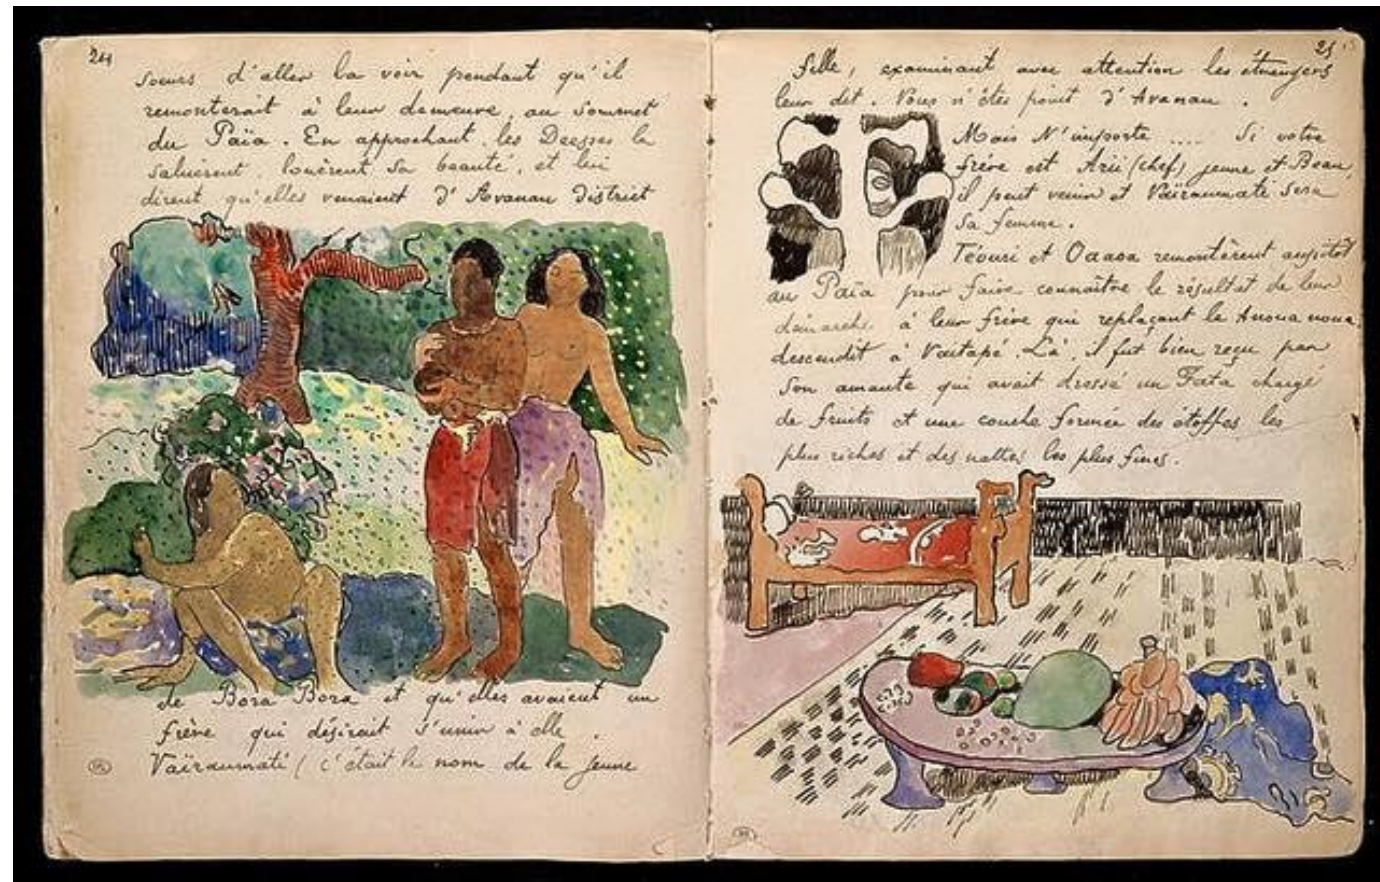 24
Soeurs d'aller la voir pendant qu'il
remonterait à leur demeure, au Sommet
du Païa. En approchant, les Déesses la
saluèrent, louèrent sa beauté, et lui
dirent qu'elles venaient d'Avanau district
de Bora Bora et qu'elles avaient un
frère qui désirait s'unir à elle.
Vaïraumati (c'était le nom de la jeune
25
fille, examinant avec attention les étrangers
leur dit. Vous n'êtes point d'Avanau.
Mais N'importe .... Si votre
frère est Arii (chef) jeune et Beau,
il peut venir et Vaïraumate Sera
Sa femme.
Téouri et Oaaoa remontèrent aussitôt
au Païa pour faire connaître le résultat de leur
démarche à leur frère qui replaçant le Anoua noua
descendit à Vaitapé. Là, il fut bien reçu par
son amante qui avait dressé un Fata chargé
de fruits et une couche formée des étoffes les
plus riches et des nattes les plus fines.